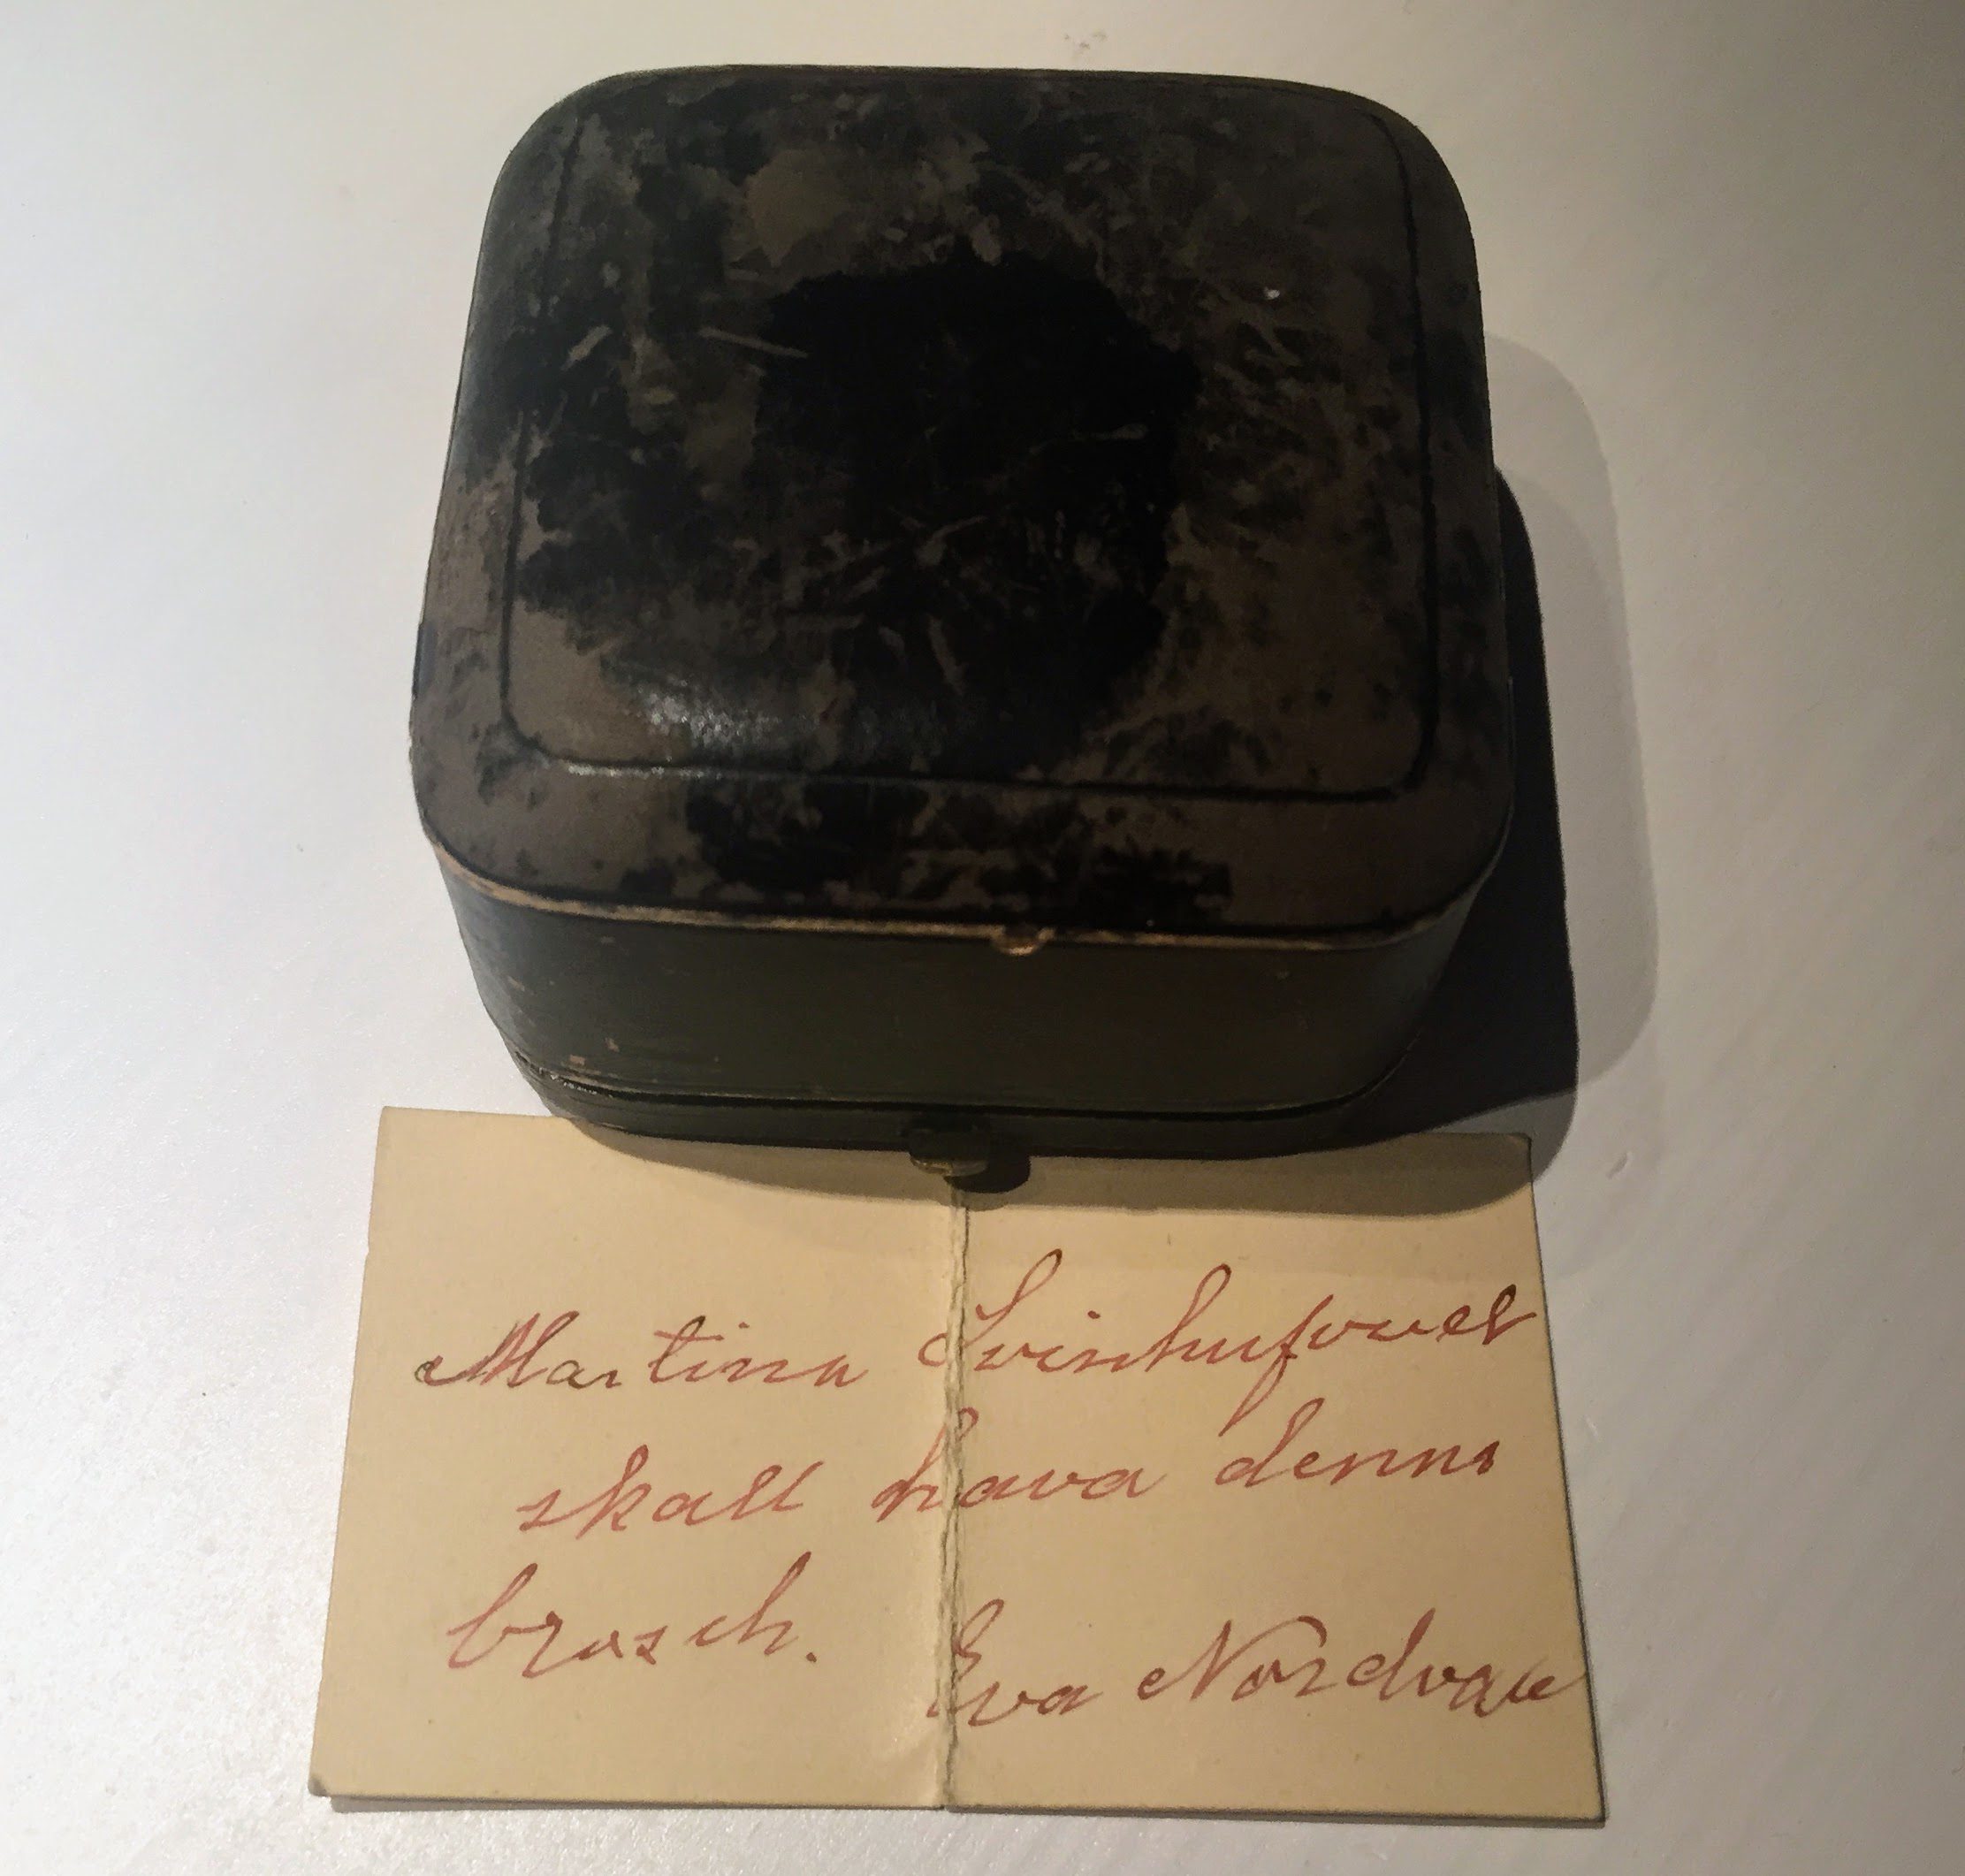 Martina Svinhufvud
skall hava denna
brosch.
Eva Nordvall